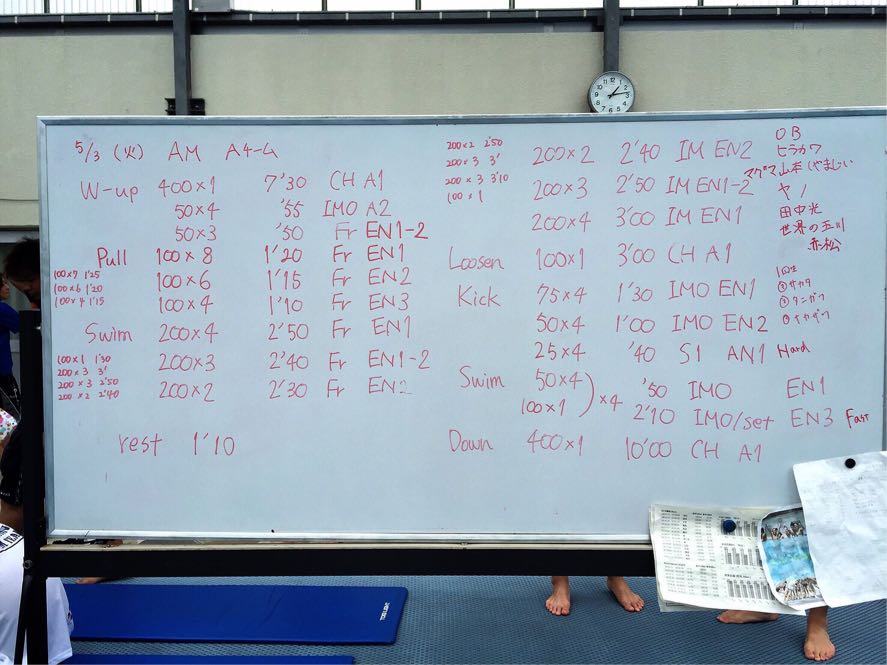 5/3 (火) AM Aチーム
W-up 400×1 7'30 CH A1
50×4 '55 IMO A2
50×3 '50 Fr EN1-2
Pull 100×8 1'20 Fr EN1
100×7 1'25
100×6 1'15 Fr EN2
100×6 1'20
100×4 1'10 Fr EN3
100×4 1'15
Swim 200×4 2'50 Fr EN1
100×1 1'30
200×3 2'40 Fr EN1-2
200×3 3'
200×3 2'50
200×2 2'30 Fr EN2
200×2 2'40
rest 1'10
200×2 2'50
200×3 3'
200×3 3'10
100×1
200×2 2'40 IM EN2
200×3 2'50 IM EN1-2
200×4 3'00 IM EN1
Loosen 100×1 3'00 CH A1
Kick 75×4 1'30 IMO EN1
50×4 1'00 IMO EN2
25×4 '40 S1 AN1 Hard
Swim 50×4 '50 IMO EN1
100×1 ) ×4 2'10 IMO/set EN3 Fast
Down 400×1 10'00 CH A1
OB
ヒラカワ
マグマ山本(やましい
田中光
世界の玉川
赤松